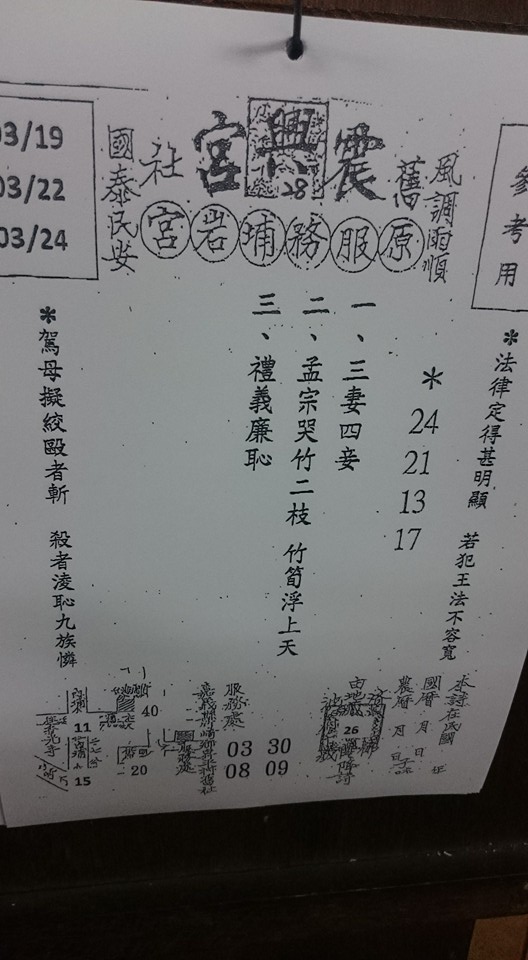 03/19
03/22
03/24
參考用
風調雨順
國泰民安
舊
震興宮
社
28
原服務埔岩宮
*法律定得甚明顯 若犯王法不容寬
*
24
21
13
17
一、三妻四妾
二、孟宗哭竹二枝 竹筍浮上天
三、禮義廉恥
*駕母擬絞毆者斬 殺者淩恥九族憐
國曆 月 日
農曆 月 日
26
服務處
03 30
08 09
40
11
20
15